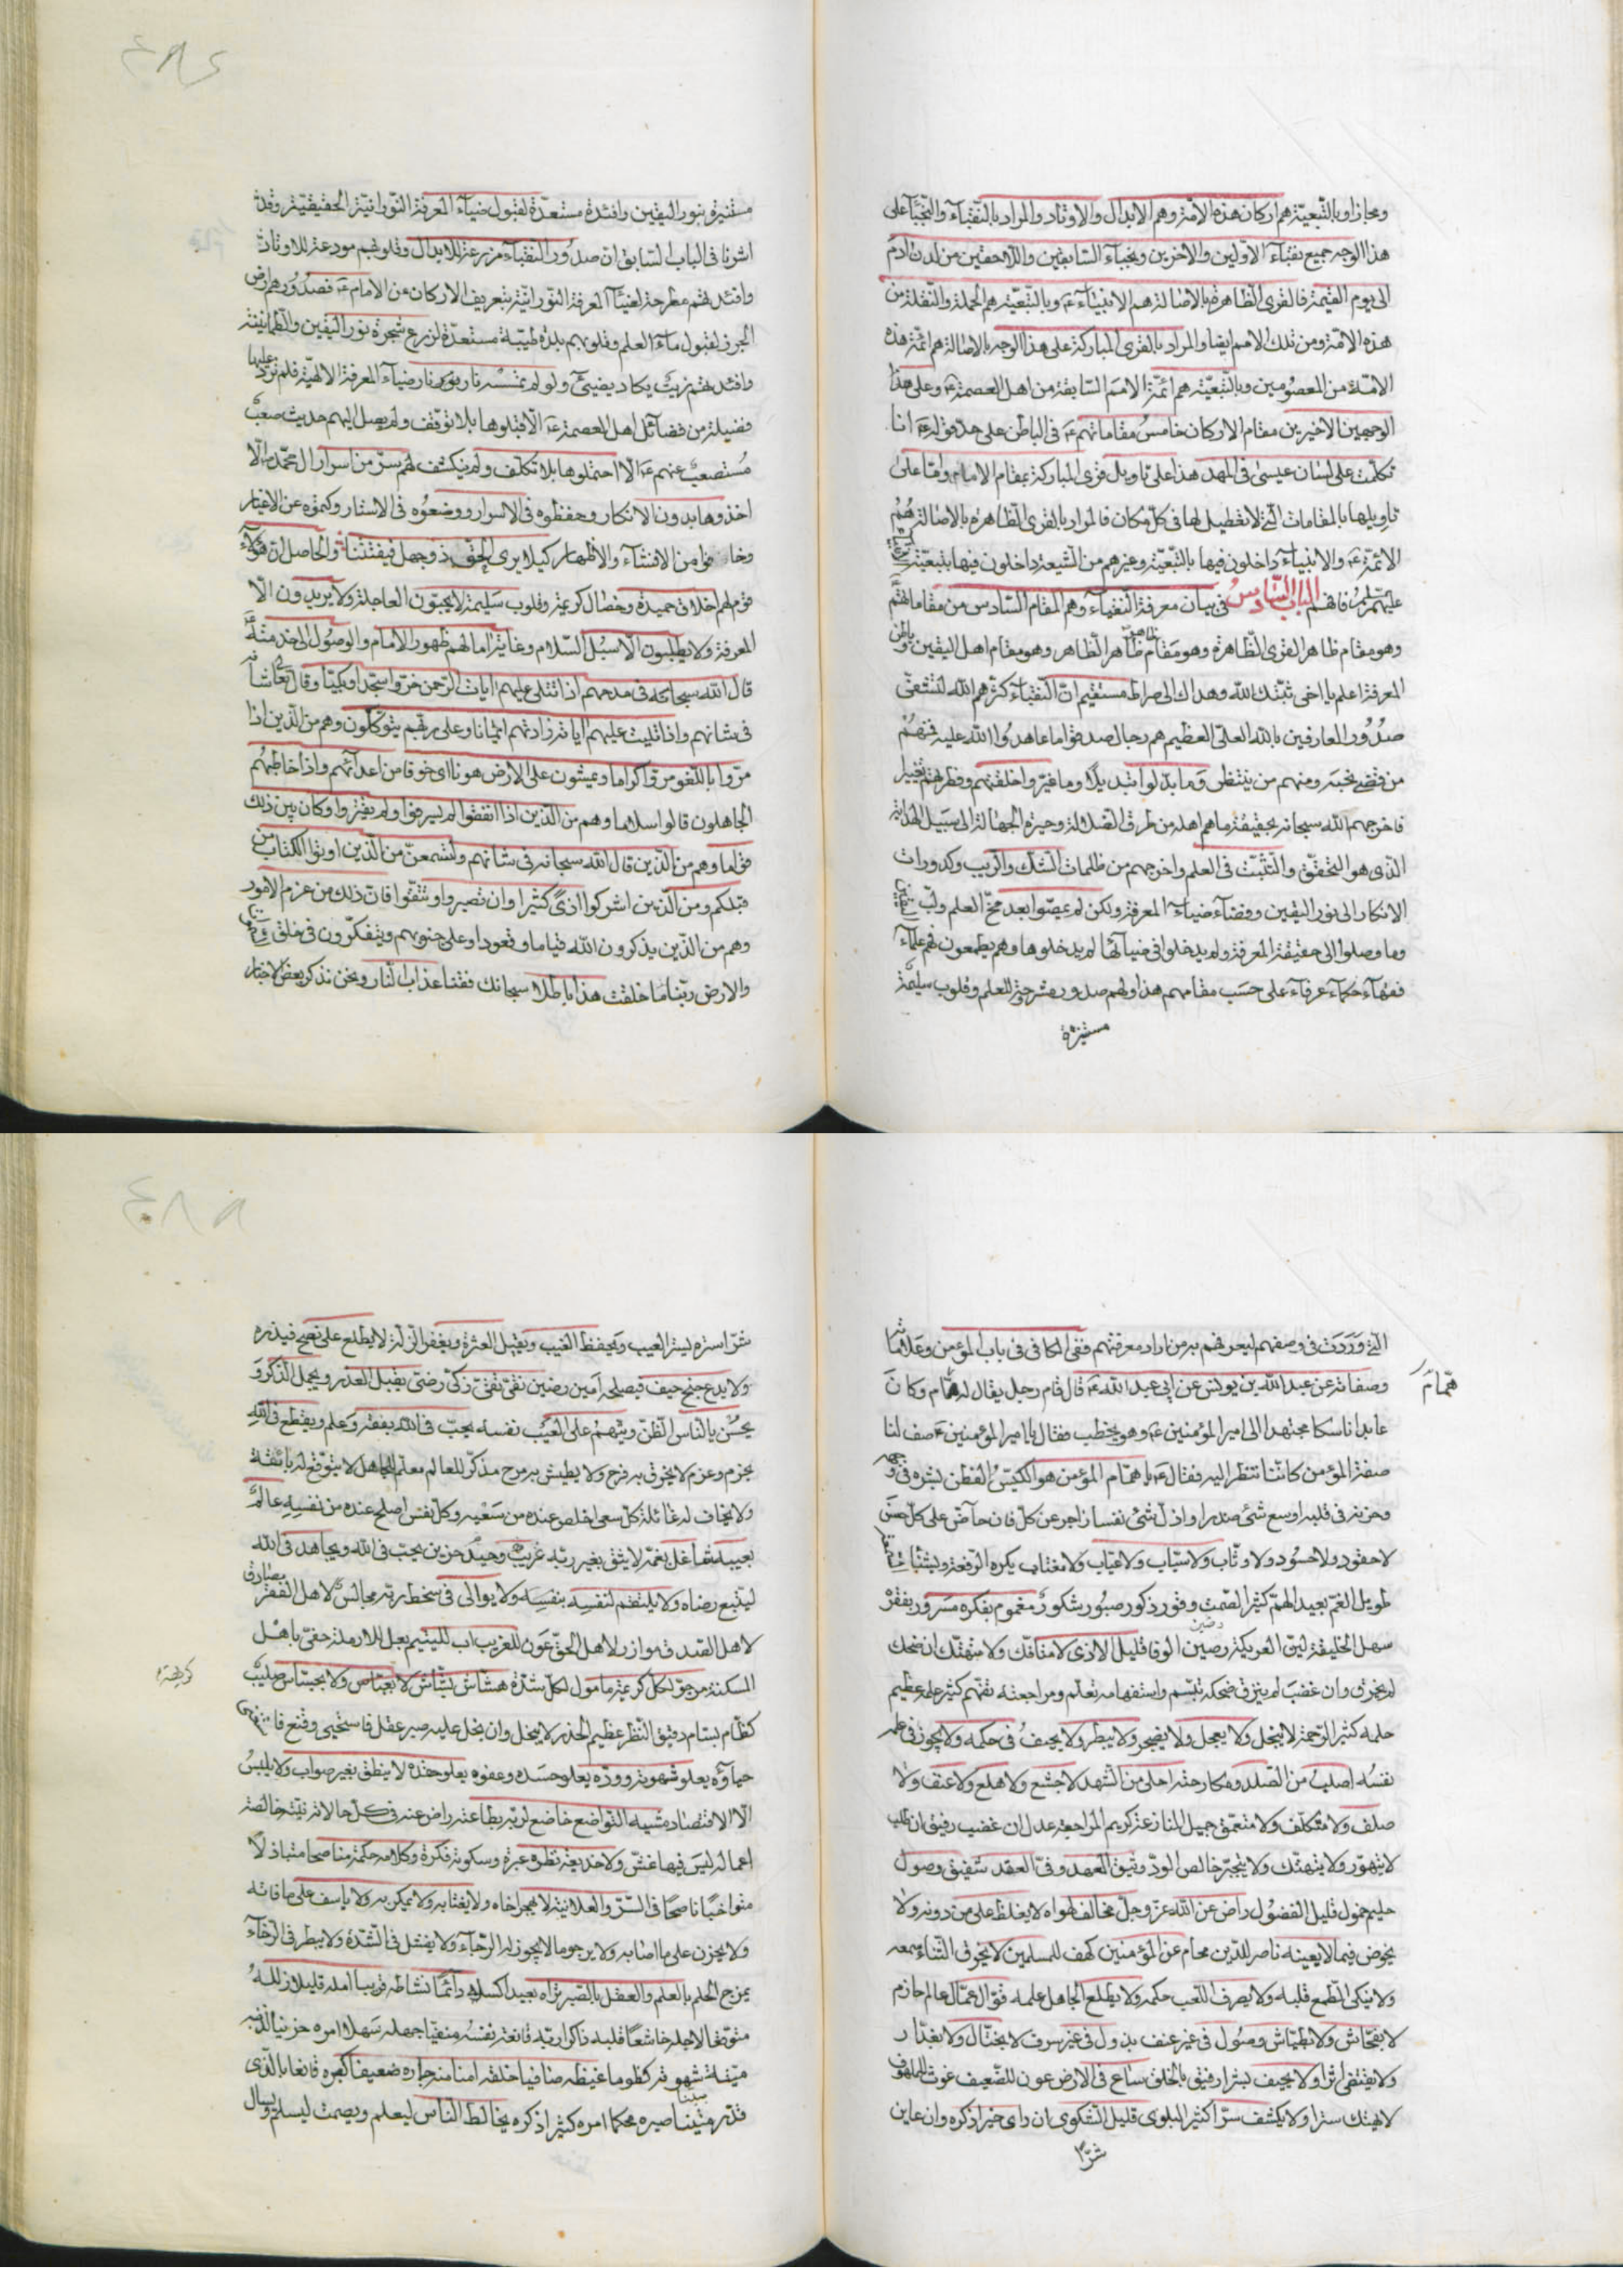 ومجازا وبالتبعيّة هم اركان هذه الامّة وهم الابدال والاوتاد والمراد بالنّقبآء والنّجبآء على
هذا الوجه جميع نقبآء الاوّلين والاخرين ونجبآء السّابقين واللاحقين من لدن ادم
الى يوم القيمة فالقرى الظّاهرة بالاصالة هم الانبيآء ع وبالتّبعيّة هم الحملة والنّقلة من
هذه الامّة ومن تلك الامم ايضا والمراد بالقرى المباركة على هذا الوجه بالاصالة هم ائمّة هذه
الامّة من المعصومين وبالتّبعيّة هم ائمّة الامم السّابقة من اهل العصمة ع وعلى هذا
الوجهين الاخيرين مقام الاركان خامس مقاماتهم ع فى الباطن على حدّ قوله ع انا
تكلّمت على لسان عيسى فى المهد هذا على تاويل قرى المباركة بمقام الامام وامّا على
تاويلها بالمقامات الّتى لا تعطيل لها فى كلّ مكان فالمراد بالقرى الظّاهرة بالاصالة هم
الائمّة ع والانبيآء داخلون فيها بالتّبعيّة وغيرهم من الشّيعة داخلون فيها بتبعيّة
عليهم فافهم الباب السّادس فى بيان معرفة النّقبآء وهم المقام السّادس من مقاماتهم
وهو مقام ظاهر القرى الظّاهرة وهو مقام ظاهر الظّاهر وهو مقام اهل اليقين و
المعرفة اعلم يا اخى ثبّتك الله وهداك الى صراط مستقيم انّ النّقبآء كثّرهم الله لتشفى
صدور العارفين بالله العلىّ العظيم هم رجال صدقوا ما عاهدوا الله عليه فمنهم
من قضى نحبه ومنهم من ينتظر وما بدّلوا تبديلا وما غيّروا خلقتهم وفطرتهم
فاخرجهم الله سبحانه بحقيقة ما هم اهله من طرق الضّلالة وحيرة الجهالة الى سبيل الهداية
الّذى هو التّحقّق والتّثبّت فى العلم واخرجهم من ظلمات الشّكّ والرّيب وكدورات
الانكار الى نور اليقين وفضآء ضيآء المعرفة ولكن لم يمصّوا بعد مخّ العلم ولبّ
وما وصلوا الى حقيقة المعرفة ولم يدخلوا فى ضيآئها لم يدخلوها وهم يطمعون فهم علمآء
فقهآء حكمآء عرفآء على حسب مقامهم هذا ولهم صدور منشرحة للعلم وقلوب سليمة
مستنيرة
مستنيرة بنور اليقين وافئدة مستعدّة لقبول ضيآء المعرفة النّورانيّة الحقيقيّة وقد
اشرنا فى الباب السّابق ان صدور النّقبآء مزرعة للابدال وقلوبهم مودعة للاوتاد
وافئدتهم مطرحة لضيآء المعرفة النّورانيّة بتعريف الاركان عن الامام ع فصدورهم ارض
الجرز لقبول مآء العلم وقلوبهم بلدة طيّبة مستعدّة لزرع شجرة نور اليقين والطّمانينة
وافئدتهم زيت يكاد يضيئ ولو لم تمسسه نار نور نار ضيآء المعرفة الالهيّة فلم ترد عليها
فضيلة من فضآئل اهل العصمة ع الّا قبلوها بلا توقّف ولم يصل اليهم حديث صعب
مستصعب عنهم ع الّا احتملوها بلا تكلّف ولم ينكشف لهم سرّ من اسرار ال محمّد الّا
اخذوها بدون الانكار وحفظوه فى الاسرار ووضعوه فى الاستار وكتموه عن الاغيار
وخافوا من الافشآء والاظهار كيلا يرى الحقّ ذو جهل فيفتتنا والحاصل انّ هؤلآء
قوم لهم اخلاق حميدة وخصال كريمة وقلوب سليمة لا يحبّون العاجلة ولا يريدون الّا
المعرفة ولا يطلبون الّا سبل السّلام وغاية امالهم ظهور الامام والوصول الى خدمته
قال الله سبحانه فى مدحهم اذا تتلى عليهم ايات الرّحمن خرّوا سجّدا وبكيّا وقال تعالى
فى شانهم واذا تليت عليهم اياته زادتهم ايمانا وعلى ربّهم يتوكّلون وهم من الّذين اذا
مرّوا باللّغو مرّوا كراما ويمشون على الارض هونا اى خوفا من اعدآئهم واذا خاطبهم
الجاهلون قالوا سلاما وهم من الّذين اذا انفقوا لم يسرفوا ولم يقتروا وكان بين ذلك
قواما وهم من الّذين قال الله سبحانه فى شانهم ولتسمعنّ من الّذين اوتوا الكتاب من
قبلكم ومن الّذين اشركوا اذى كثيرا وان تصبروا وتتّقوا فان ذلك من عزم الامور
وهم من الّذين يذكرون الله قياما وقعودا وعلى جنوبهم ويتفكّرون فى خلق
والارض ربّنا ما خلقت هذا باطلا سبحانك فقنا عذاب النّار ونحن نذكر بعض الاخبار
الّتى وردت فى وصفهم ليعرفهم به من اراد معرفتهم ففى الكافى فى باب المؤمن وعلاماته
وصفاته عن عبد الله بن يونس عن ابى عبد الله ع قال قام رجل يقال له همّام وكان
همّام
عابدا ناسكا مجتهدا الى امير المؤمنين ع وهو يخطب فقال يا امير المؤمنين ع صف لنا
صفة المؤمن كانّنا ننظر اليه فقال ع يا همّام المؤمن هو الكيّس الفطن بشره فى وجهه
وحزنه فى قلبه اوسع شئ صدرا واذلّ شئ نفسا زاجر عن كلّ فان حآضّ على كلّ حسن
لا حقود ولا حسود ولا وثّاب ولا سبّاب ولا عيّاب ولا مغتاب يكره الرّفعة ويشنا
طويل الغمّ بعيد الهمّ كثير الصّمت وقور ذكور صبور شكور مغموم بفكره مسرور بفقره
سهل الخليقة ليّن العريكة رصين الوفا قليل الاذى لا متافّك ولا متهتّك ان ضحك
لم يخرق وان غضب لم ينزق ضحكه تبسّم واستفهامه تعلّم ومراجعته تفهّم كثير علمه عظيم
حلمه كثير الرّحمة لا يبخل ولا يعجل ولا يضجر ولا يبطر ولا يحيف فى حكمه ولا يجوز فى علمه
نفسه اصلب من الصّلد ومكادحته احلى من الشّهد لا جشع ولا هلع ولا عنف ولا
صلف ولا متكلّف ولا متعمّق جميل المنازعة كريم المراجعة عدل ان غضب رفيق ان طلب
لا يتهوّر ولا يتهتّك ولا يتجبّر خالص الودّ وثيق العهد وفىّ العقد شفيق وصول
حليم حمول قليل الفضول راض عن الله عزّ وجلّ مخالف لهواه لا يغلظ على من دونه ولا
يخوض فيما لا يعينه ناصر للدّين محام عن المؤمنين كهف للمسلمين لا يخرق الثّنآء سمعه
ولا ينكى الطّمع قلبه ولا يصرف اللّعب حكمه ولا يطّلع الجاهل علمه قوّال عمّال عالم حازم
لا بفحّاش ولا بطيّاش وصول فى غير عنف بذول فى غير سرف لا بختّال ولا بغدّار
ولا يقتفى اثرا ولا يحيف بشرا رفيق بالخلق ساع فى الارض عون للضّعيف غوث للملهوف
لا يهتك سترا ولا يكشف سرّا كثير البلوى قليل الشّكوى ان راى خيرا ذكره وان عاين
شرّا
شرّا ستره يستر العيب ويحفظ الغيب ويقيل العثرة ويغفر الزّلّة لا يطّلع على نصح فيذره
ولا يدع جنح حيف فيصلحه امين رصين تقىّ نقىّ زكىّ رضىّ يقبل العذر ويجمل الذّكر و
يحسن بالنّاس الظّنّ ويتّهم على العيب نفسه يحبّ فى الله بفقه وعلم ويقطع فى الله
بحزم وعزم لا يخرق به فرح ولا يطيش به مرح مذكّر للعالم معلّم للجاهل لا يتوقّع له بائقة
ولا يخاف له غائلة كلّ سعى اخلص عنده من سعيه وكلّ نفس اصلح عنده من نفسه عالم
بعيبه شاغل بغمّه لا يثق بغير ربّه غريب وحيد حزين يحبّ فى الله ويجاهد فى الله
ليتّبع رضاه ولا ينتقم لنفسه بنفسه ولا يوالى فى سخط ربّه مجالس لاهل الفقر مصادق
لاهل الصّدق موازر لاهل الحقّ عون للغريب اب لليتيم بعل للارملة حفىّ باهل
المسكنة مرجوّ لكلّ كريهة مامول لكلّ شدّة هشّاش بشّاش لا بعبّاس ولا بجسّاس صليب
كريهة
كظّام بسّام دقيق النّظر عظيم الحذر لا يبخل وان بخل عليه صبر عقل فاستحيى وقنع فاستغنى
حياؤه يعلو شهوته وودّه يعلو حسده وعفوه يعلو حقده لا ينطق بغير صواب ولا يلبس
الّا الاقتصاد مشيه التّواضع خاضع لربّه بطاعته راض عنه فى كلّ حالاته نيّته خالصة
اعماله ليس فيها غشّ ولا خديعة نظره عبرة وسكوته فكرة وكلامه حكمة مناصحا متباذلا
متواخيا ناصحا فى السّرّ والعلانية لا يهجر اخاه ولا يغتابه ولا يمكر به ولا ياسف على ما فاته
ولا يحزن على ما اصابه ولا يرجو ما لا يجوز له الرّجآء ولا يفشل فى الشّدّة ولا يبطر فى الرّخآء
يمزج الحلم بالعلم والعقل بالصّبر تراه بعيدا كسله دآئما نشاطه قريبا امله قليلا زلله
متوقّعا لاجله خاشعا قلبه ذاكرا ربّه قانعة نفسه منفيّا جهله سهلا امره حزينا لذنبه
ميّتة شهوته كظوما غيظه صافيا خلقه امنا منه جاره ضعيفا كبره قانعا بالّذى
قدّر متينا صبره محكما امره كثيرا ذكره يخالط النّاس ليعلم ويصمت ليسلم ويسال